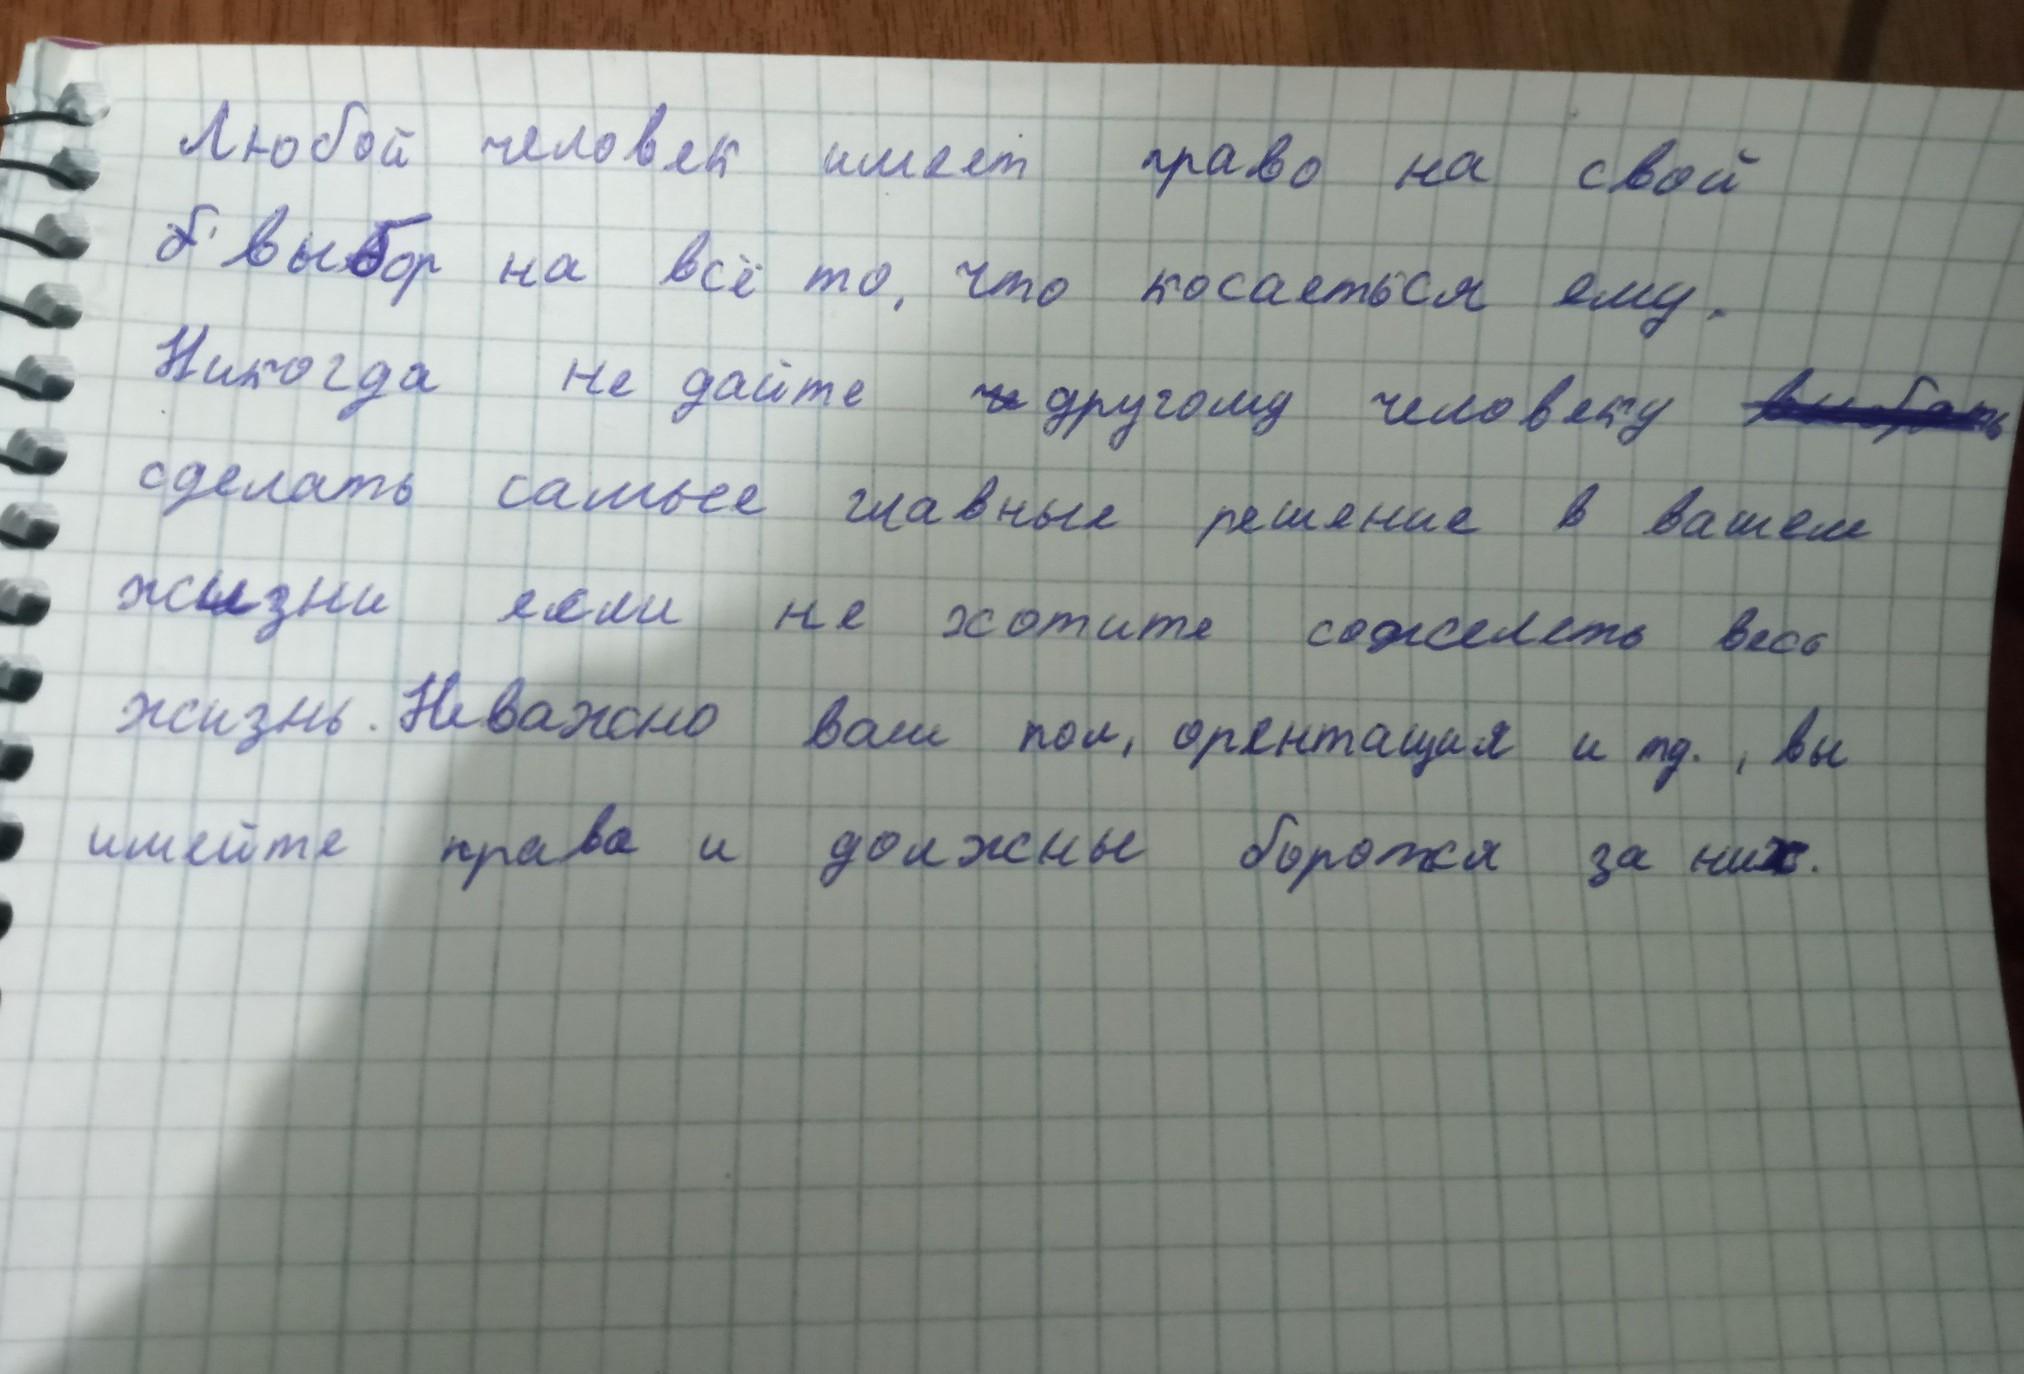 Любой человек имеет право на свой
выбор на всё то, что косаеться ему.
Никогда не дайте другому человеку
сделать самые главные решение в вашем
жизни если не хотите сожелеть весь
жизнь. Неважно ваш пол, орентация и тд., вы
имейте права и должны боротся за них.